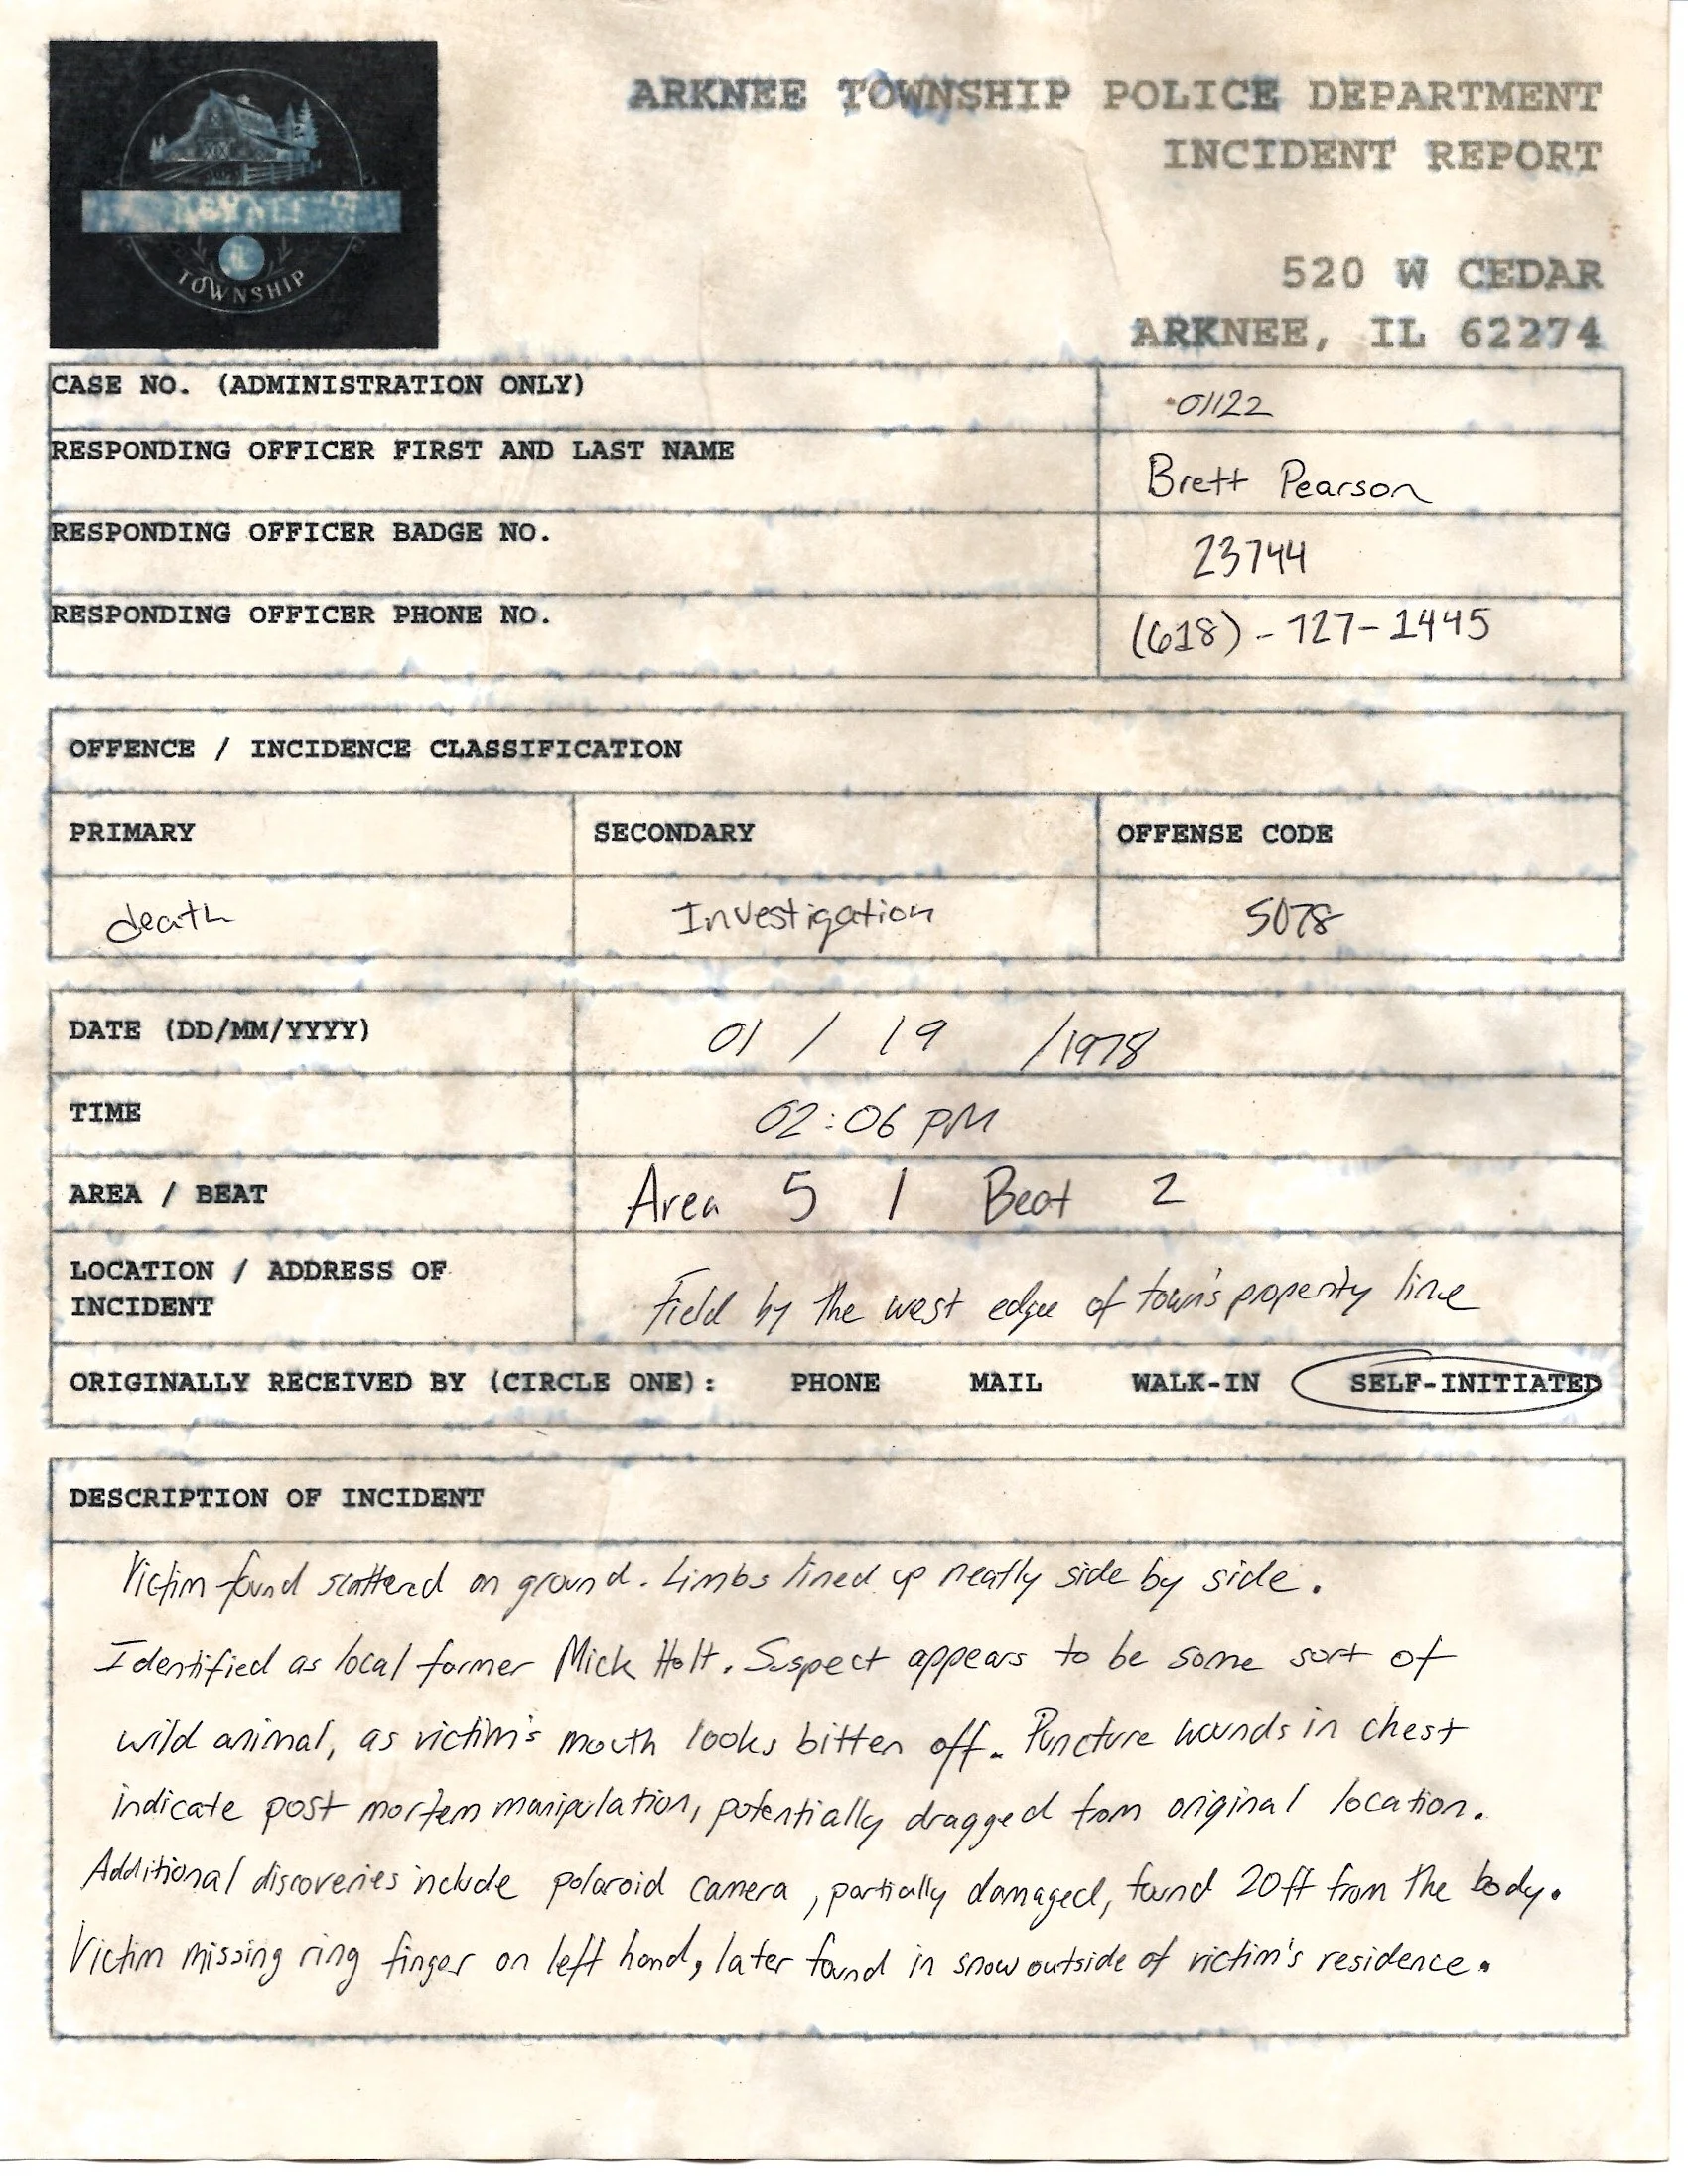 TOWNSHIP
ARKNEE TOWNSHIP POLICE DEPARTMENT
INCIDENT REPORT
520 W CEDAR
ARKNEE, IL 62274
CASE NO. (ADMINISTRATION ONLY) 01122
RESPONDING OFFICER FIRST AND LAST NAME Brett Pearson
RESPONDING OFFICER BADGE NO. 23744
RESPONDING OFFICER PHONE NO. (618)-727-1445
OFFENCE / INCIDENCE CLASSIFICATION
PRIMARY SECONDARY OFFENSE CODE
death Investigation 5078
DATE (DD/MM/YYYY) 01 / 19 /1978
TIME 02:06 PM
AREA / BEAT Area 5 / Beat 2
LOCATION / ADDRESS OF
INCIDENT Field by the west edge of town's property line
ORIGINALLY RECEIVED BY (CIRCLE ONE): PHONE MAIL WALK-IN SELF-INITIATED
DESCRIPTION OF INCIDENT
Victim found scattered on ground. Limbs lined up neatly side by side.
Identified as local farmer Mick Holt. Suspect appears to be some sort of
wild animal, as victim's mouth looks bitten off. Puncture wounds in chest
indicate post mortem manipulation, potentially dragged from original location.
Additional discoveries include polaroid camera, partially damaged, found 20ft from the body.
Victim missing ring finger on left hand, later found in snow outside of victim's residence.